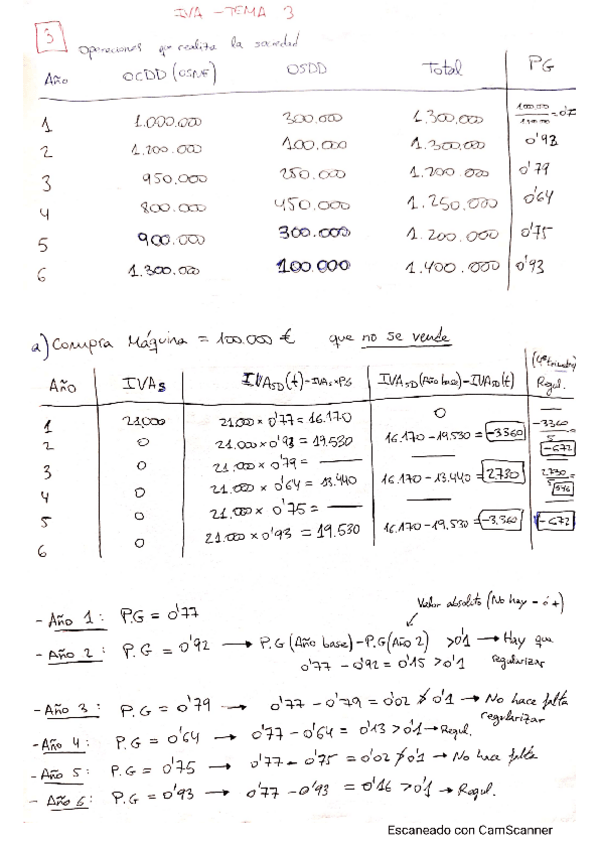 IVA - TEMA 3
3 Operaciones que realiza la sociedad
Año OCDD (OSNE) OSDD Total PG
1 1.000.000 300.000 1.300.000
2 1.200.000 100.000 1.300.000 0'92
3 950.000 250.000 1.200.000 0'79
4 800.000 450.000 1.250.000 0'64
5 900.000 300.000 1.200.000 0'75
6 1.300.000 100.000 1.400.000 0'93
a) Compra Máquina = 100.000 € que no se vende
Año IVAs IVASD(t) = IVAs × PG IVASD(Año base) - IVASD(t) (4º trimestre) Regul.
1 21.000 21.000 × 0'77 = 16.170 0 —
2 0 21.000 × 0'93 = 19.530 16.170 - 19.530 = -3360 -3360/5 -672
3 0 21.000 × 0'79 = — — —
4 0 21.000 × 0'64 = 13.440 16.170 - 13.440 = 2730 2730/5 546
5 0 21.000 × 0'75 = — — —
6 0 21.000 × 0'93 = 19.530 16.170 - 19.530 = -3.360 -672
Valor absoluto (No hay - ó +)
- Año 1: P.G = 0'77
- Año 2: P.G = 0'92 → P.G (Año base) - P.G (Año 2) > 0'1 → Hay que
0'77 - 0'92 = 0'15 > 0'1 regularizar
- Año 3: P.G = 0'79 → 0'77 - 0'79 = 0'02 ≯ 0'1 → No hace falta
regularizar
- Año 4: P.G = 0'64 → 0'77 - 0'64 = 0'13 > 0'1 → Regul.
- Año 5: P.G = 0'75 → 0'77 - 0'75 = 0'02 ≯ 0'1 → No hace falta
- Año 6: P.G = 0'93 → 0'77 - 0'93 = 0'16 > 0'1 → Regul.
Escaneado con CamScanner